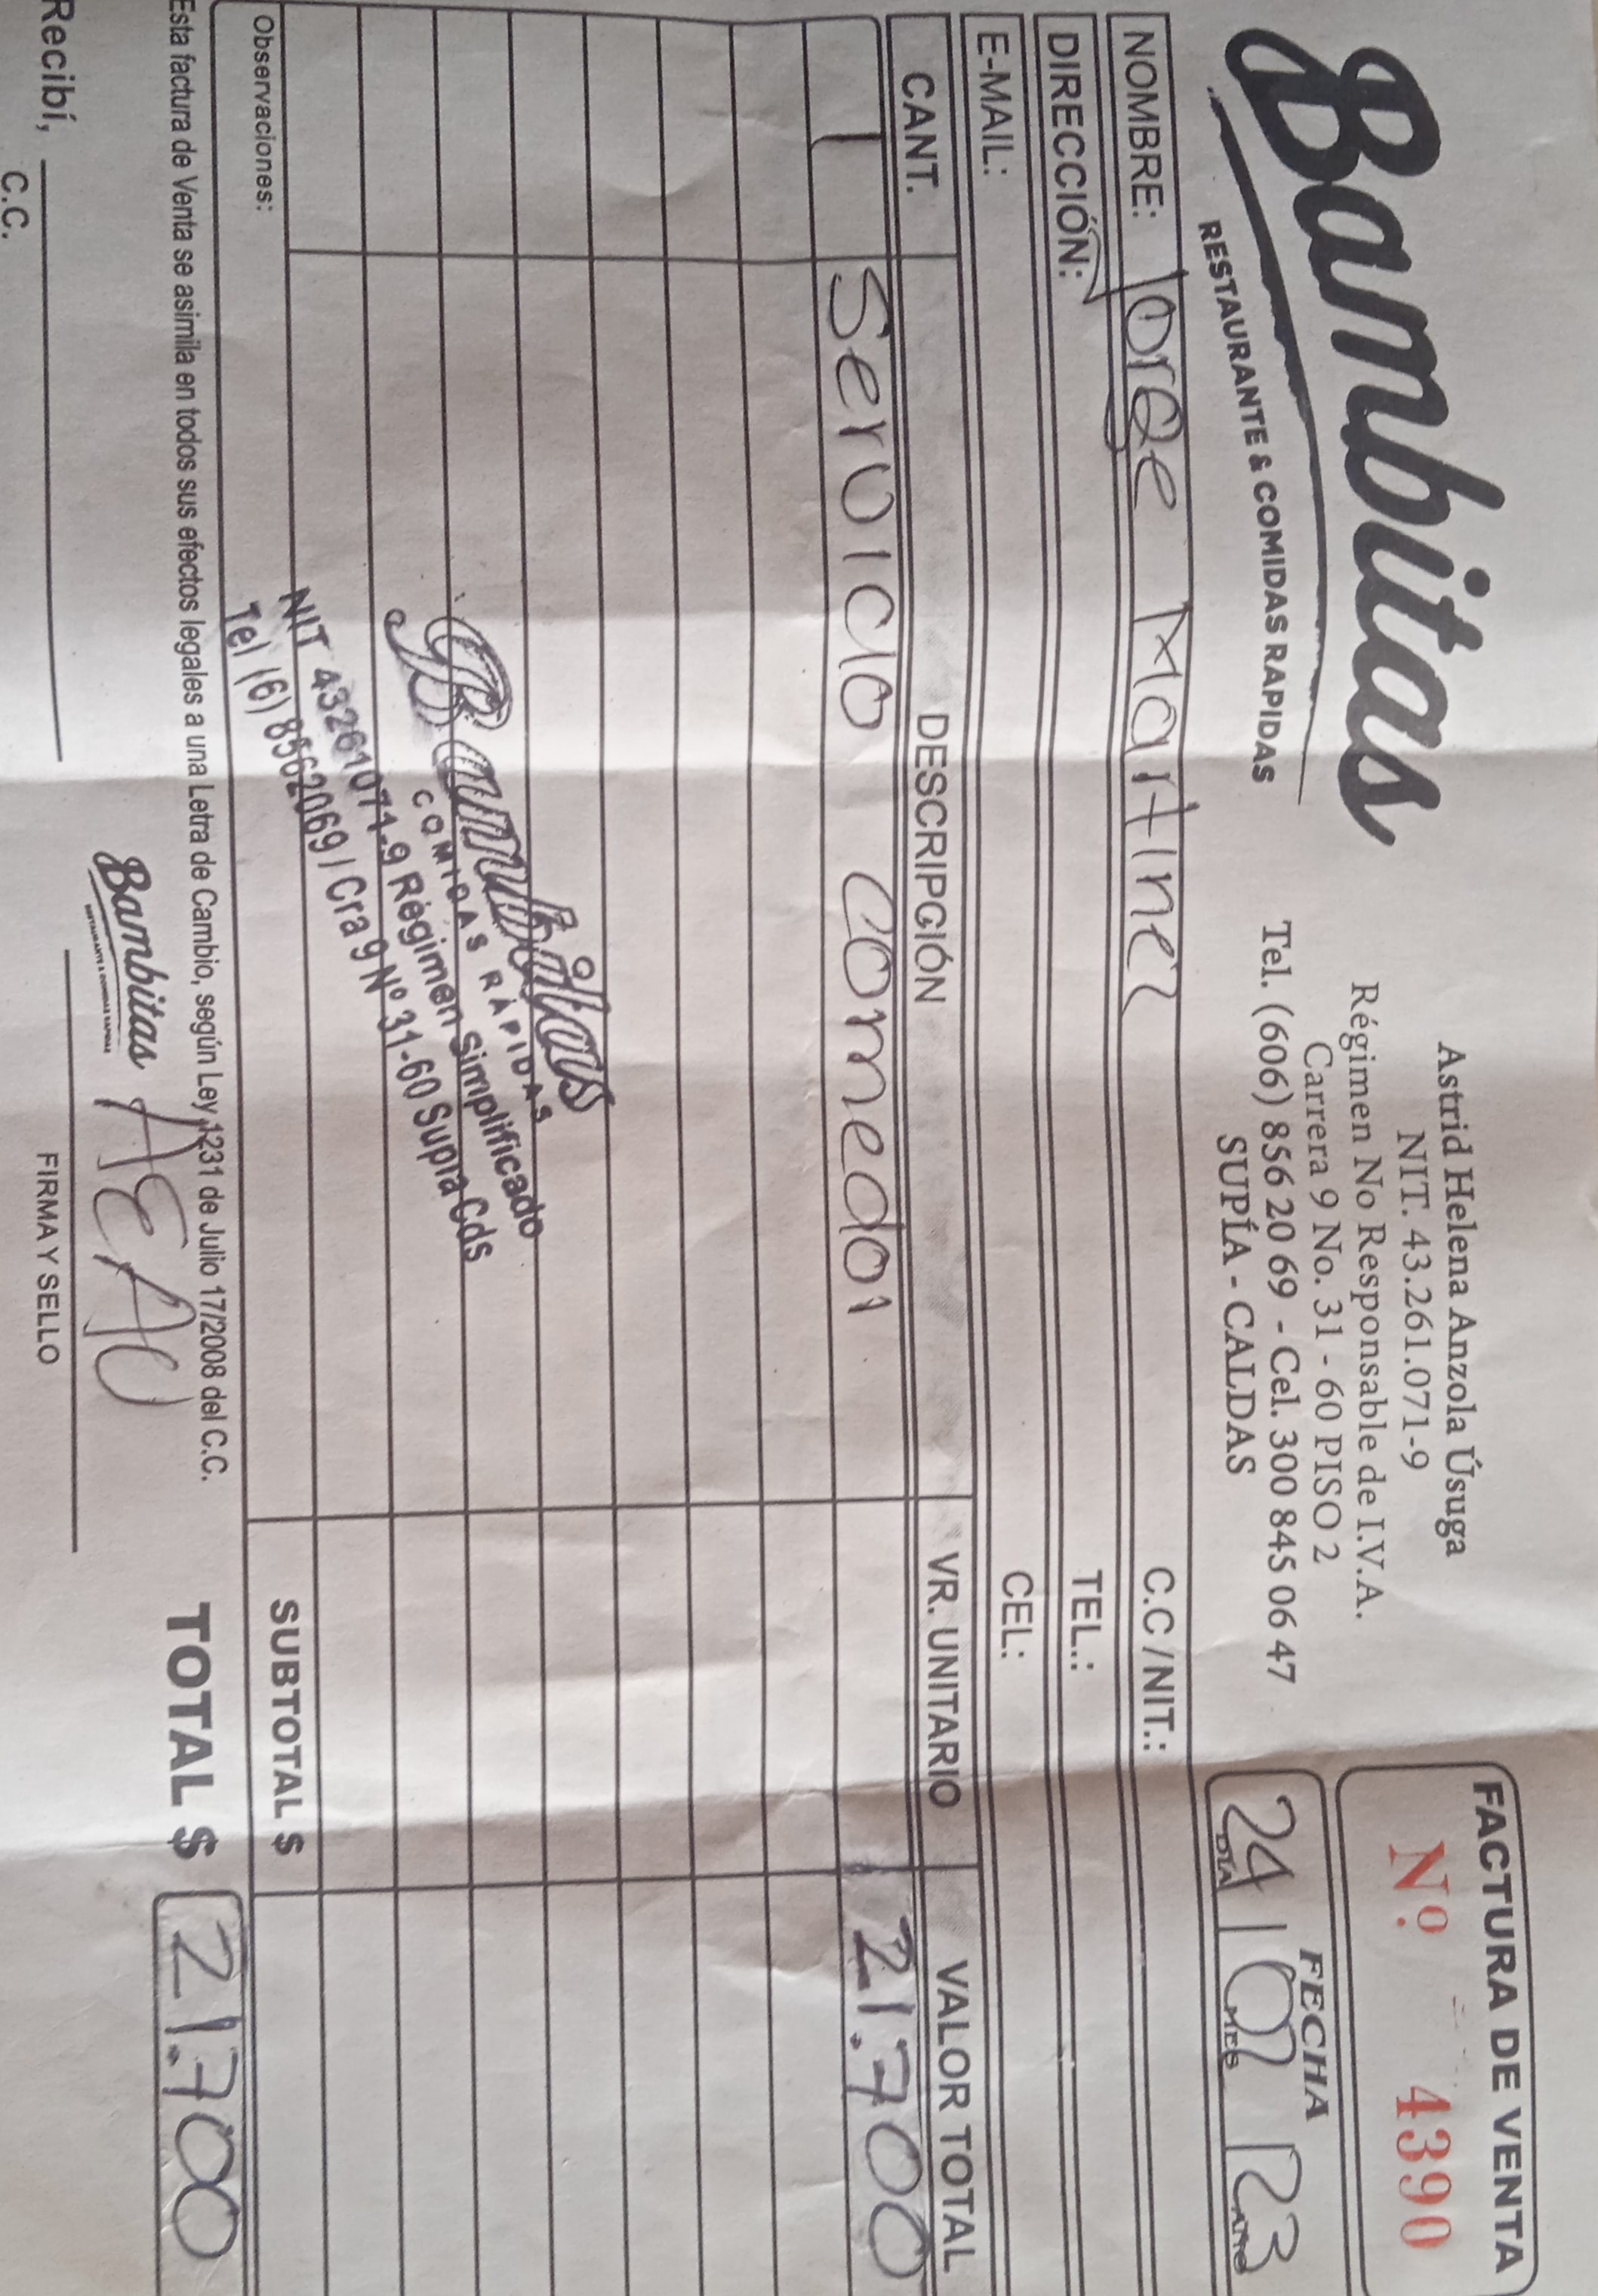 Bambitas
RESTAURANTE & COMIDAS RAPIDAS
Astrid Helena Anzola Úsuga
NIT. 43.261.071-9
Régimen No Responsable de I.V.A.
Carrera 9 No. 31 - 60 PISO 2
Tel. (606) 856 20 69 - Cel. 300 845 06 47
SUPÍA - CALDAS
FACTURA DE VENTA
Nº 4390
FECHA
24 02 23
DÍA MES AÑO
NOMBRE: Jorge Martinez C.C /NIT.:
DIRECCIÓN: TEL.:
E-MAIL: CEL.:
CANT. DESCRIPCIÓN VR. UNITARIO VALOR TOTAL
1 Servicio comedor 21.700
Bambitas
COMIDAS RÁPIDAS
NIT 43261071-9 Régimen Simplificado
Tel (6) 8562069 / Cra 9 Nº 31-60 Supia Cds
Observaciones: SUBTOTAL $
Esta factura de Venta se asimila en todos sus efectos legales a una Letra de Cambio, según Ley 1231 de Julio 17/2008 del C.C.
TOTAL $ 21.700
Bambitas
RESTAURANTE & COMIDAS RAPIDAS
Recibí,
C.C.
FIRMA Y SELLO